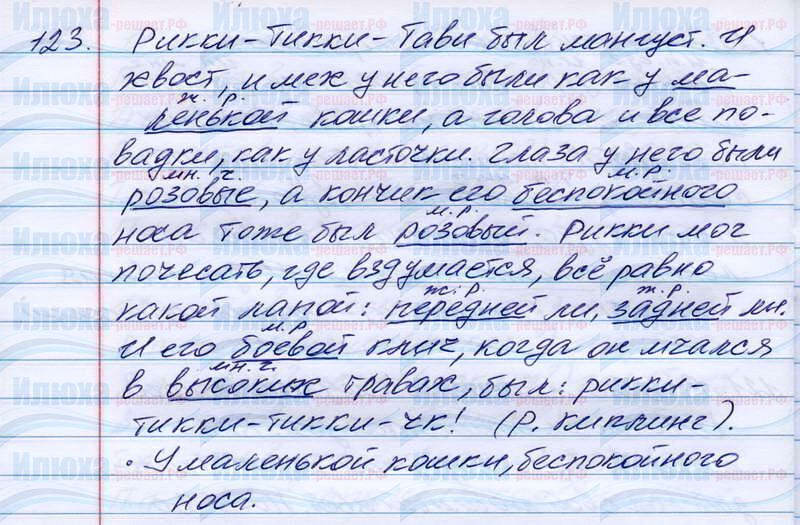 123. Рикки-Тикки-Тави был мангуст. И
хвост, и мех у него были как у ма-
ж. р.
ленькой кошки, а голова и все по-
вадки, как у ласточки. Глаза у него были
мн. ч. м. р.
розовые, а кончик его беспокойного
м. р.
носа тоже был розовый. Рикки мог
почесать, где вздумается, всё равно
ж. р. ж. р.
какой лапой: передней ли, задней ли.
м. р.
И его боевой клич, когда он мчался
мн. ч.
в высоких травах, был: рикки-
тикки-тикки-чк! (Р. Киплинг).
• У маленькой кошки, беспокойного
носа.